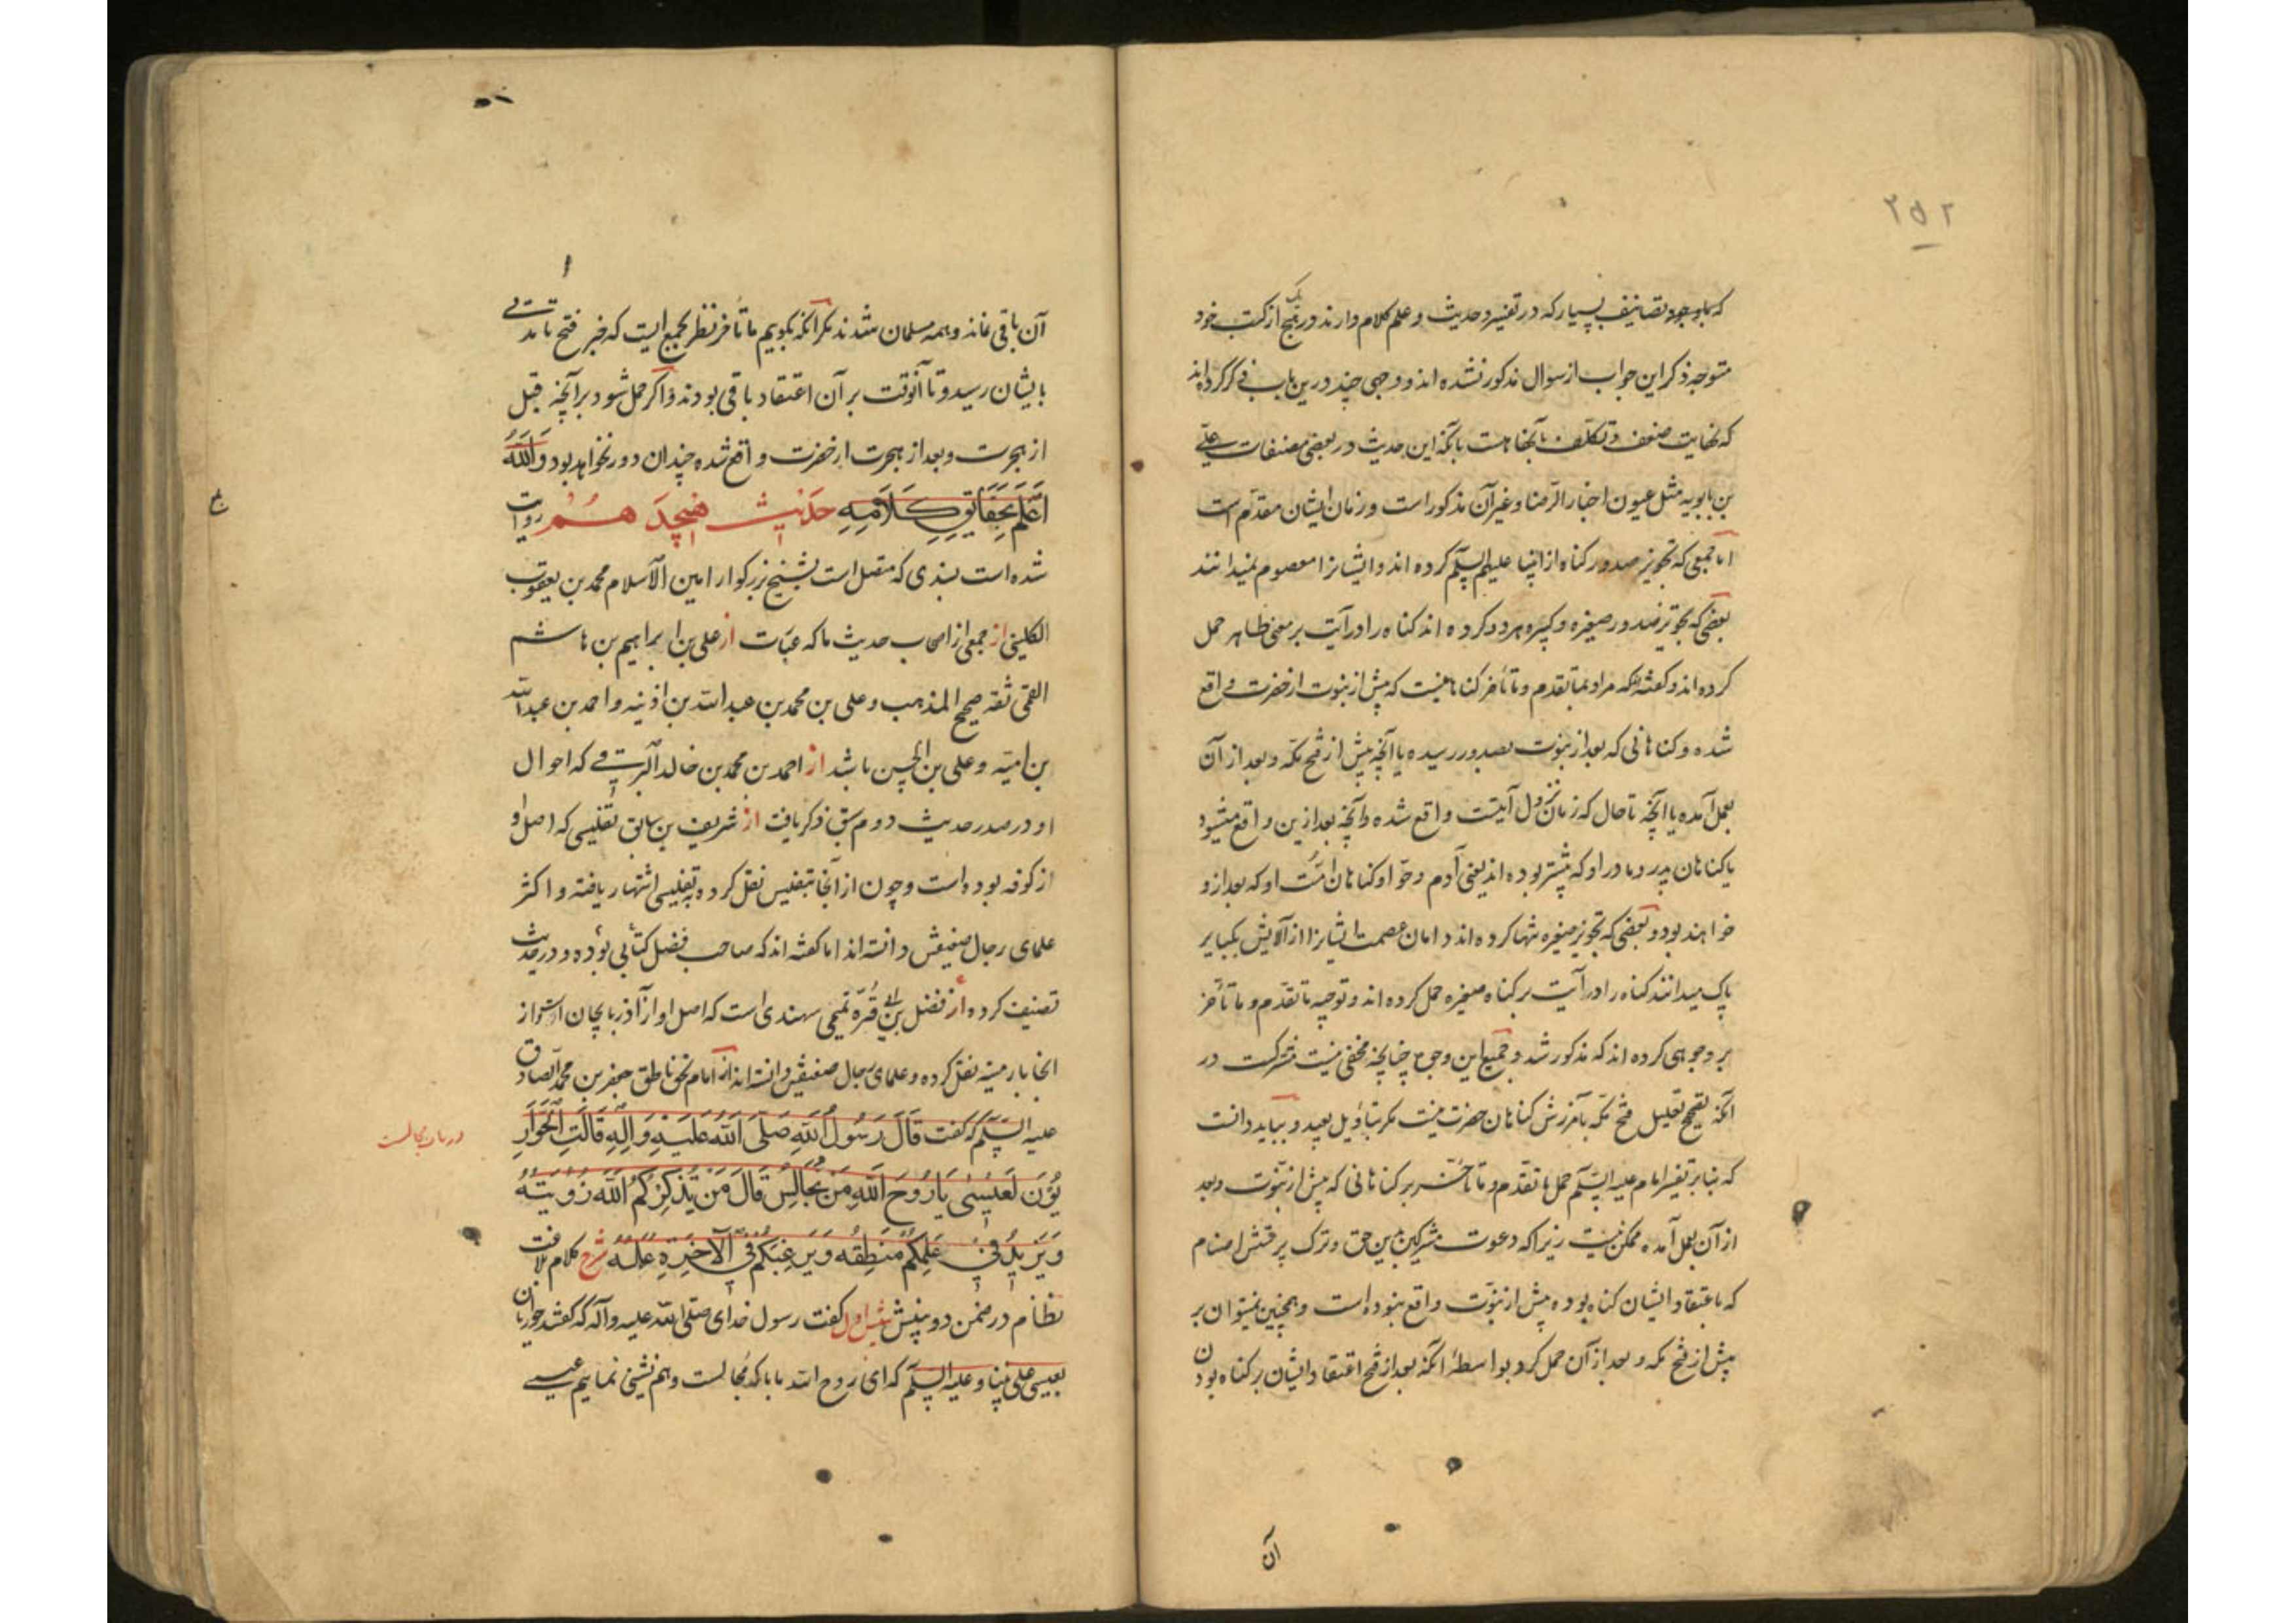 ۲۵۲
که باوجود تصانیف بسیار که در تفسیر و حدیث و علم کلام دارند در هیچ یک از کتب خود
متوجه ذکر این جواب از سوال مذکور نشده اند و وجهی چند درین باب ذکر کرده اند
که نهایت ضعف و تکلف با آنها هست با آنکه این حدیث در بعضی مصنفات علی
بن بابویه مثل عیون اخبار الرضا و غیر آن مذکور است و زمان ایشان مقدم است
اما جمعی که تجویز صدور گناه از انبیا علیهم السلم کرده اند و ایشانرا معصوم نمیدانند
بعضی که تجویز صدور صغیره و کبیره هر دو کرده اند گناه را در آیت بر معنی ظاهر حمل
کرده اند و گفته اند که مراد بما تقدم و ما تأخر گناهانیست که پیش از نبوت از حضرت واقع
شده و گناهانی که بعد از نبوت بصدور رسیده یا آنچه پیش از فتح مکه و بعد از آن
بعمل آمده یا آنچه تا حال که زمان نزول آیتست واقع شده و آنچه بعد ازین واقع میشود
یا گناهان پدر و مادر او که پیشتر بوده اند یعنی آدم و حوا و گناهان امّت او که بعد ازو
خواهند بود و بعضی که تجویز صغیره تنها کرده اند و دامان عصمت ایشانرا از آلایش بکبایر
پاک میدانند گناه را در آیت بر گناه صغیره حمل کرده اند و توجیه ما تقدم و ما تأخر
بر وجوهی کرده اند که مذکور شد و جمیع این وجوه چنانچه مخفی نیست مشترکست در
آنکه تصحیح تعلیل فتح مکه بآمرزش گناهان حضرت نیست مگر بتأویل بعید و بباید دانست
که بنا بر تفسیر امام علیه السلم حمل ما تقدم و ما تأخر بر گناهانی که پیش از نبوت و بعد
از آن بعمل آمده ممکن نیست زیرا که دعوت مشرکین بدین حق و ترک پرستش اصنام
که باعتقاد ایشان گناه بوده پیش از نبوت واقع نبوده است و همچنین نمیتوان بر
پیش از فتح مکه و بعد از آن حمل کرد بواسطهٔ آنکه بعد از فتح اعتقاد ایشان بر گناه بودن
آن
آن باقی نماند و همه مسلمان شدند مگر آنکه بگوییم ما تأخر نظر بجمعی است که خبر فتح تا مدتی
بایشان رسید و تا آنوقت بر آن اعتقاد باقی بودند و اگر حمل شود بر آنچه قبل
از هجرت و بعد از هجرت از حضرت واقع شده چندان دور نخواهد بود وَاللهُ
اَعْلَمُ بِحَقَایِقِ کَلَامِهِ حدیث هیجدهم روایت
شده است بسندی که متصل است بشیخ بزرگوار امین الاسلام محمد بن یعقوب
الکلینی از جمعی از اصحاب حدیث ما که عبارت از علی بن ابراهیم بن هاشم
القمی ثقه صحیح المذهب و علی بن محمد بن عبد الله بن اذینه و احمد بن عبد الله
بن امیّه و علی بن الحسین باشد از احمد بن محمد بن خالد البرقی که احوال
او در صدر حدیث دوم سبق ذکر یافت از شریف بن سابق تفلیسی که اصل او
از کوفه بوده است و چون از آنجا بتفلیس نقل کرده به تفلیسی اشتهار یافته و اکثر
علمای رجال ضعیفش دانسته اند اما گفته اند که صاحب فضل کتابی بوده و در حدیث
تصنیف کرده از فضل بن ابی قُرّه تمیمی سهندی است که اصل او از آذربایجان است و از
آنجا بارمنیه نقل کرده و علمای رجال ضعیفش دانسته اند از امام بحق ناطق جعفر بن محمد الصادق
علیه السلم که گفت قَالَ رَسُولُ اللهِ صَلَّی اللهُ عَلَیْهِ وَآلِهِ قَالَتِ الْحَوَارِ
یُّونَ لِعِیسٰی یَا رُوحَ اللهِ مَنْ نُجَالِسُ قَالَ مَنْ یُذَکِّرُکُمُ اللهَ رُؤْیَتُهُ
وَیَزِیدُ فِی عِلْمِکُمْ مَنْطِقُهُ وَیُرَغِّبُکُمْ فِی الْآخِرَةِ عَمَلُهُ شرح کلام بلاغت
نظام در ضمن دو بینش بینش اول گفت رسول خدای صلی الله علیه و آله که گفتند حواریان
بعیسی علی نبینا و علیه السلم که ای روح الله ما با که مجالست و هم نشینی نماییم عیسی
در باب مجالست